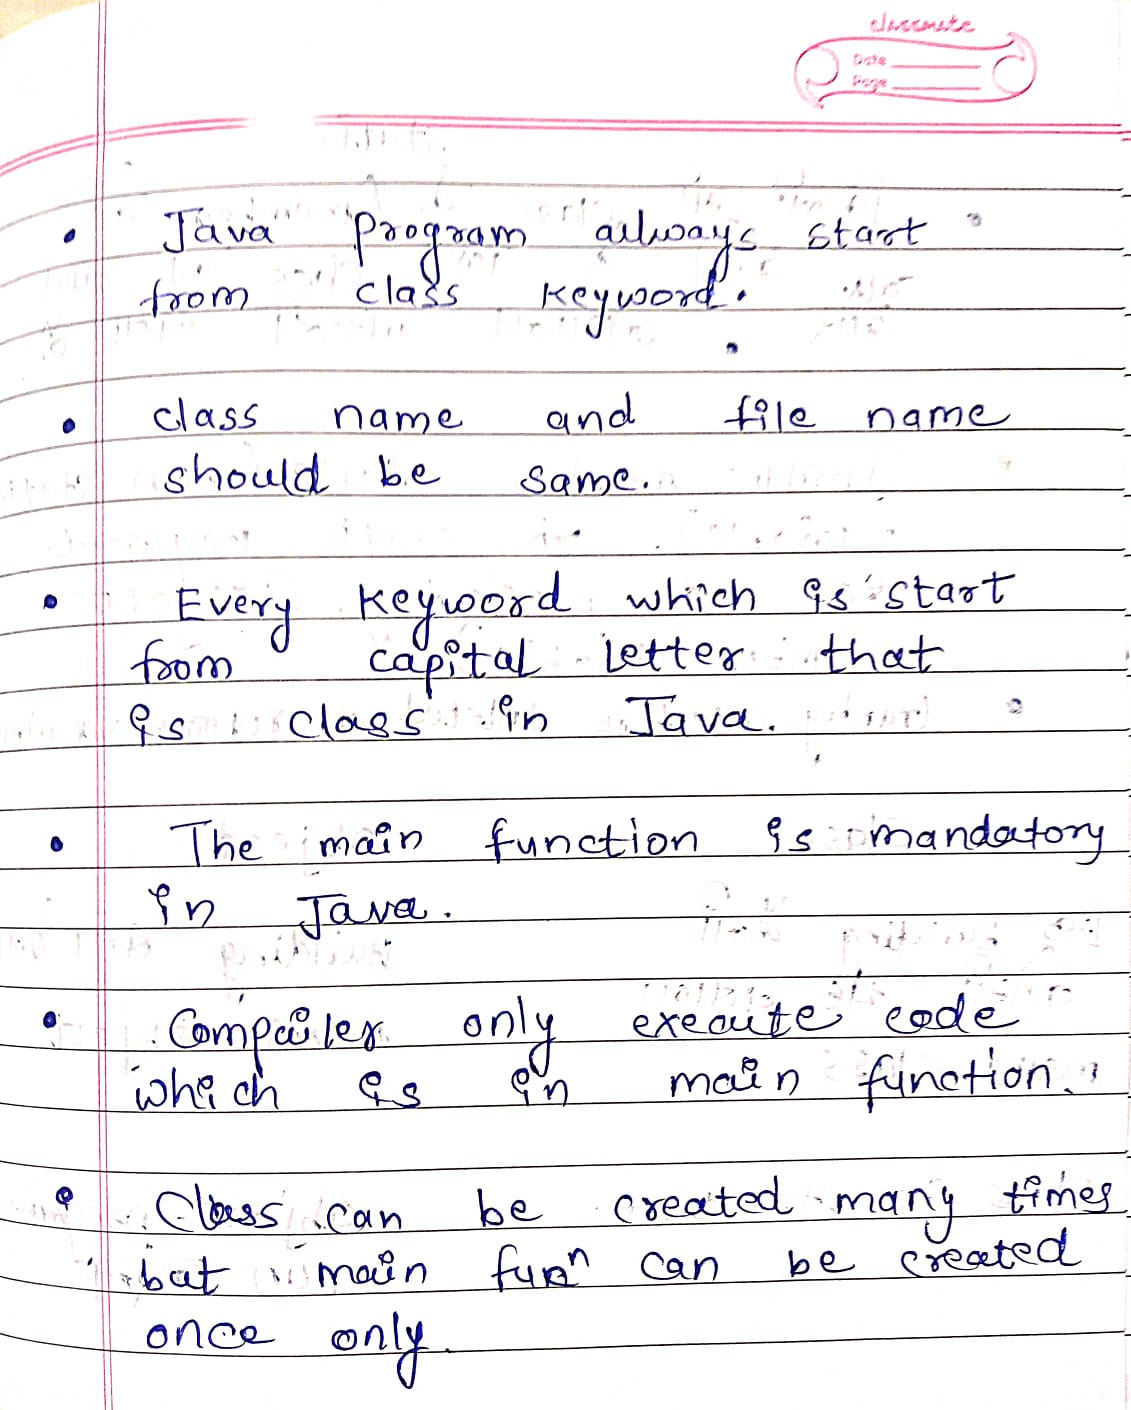 classmate
Date
Page
• Java program always start
from class keyword.
• class name and file name
should be same.
• Every keyword which is start
from capital letter that
is class in Java.
• The main function is mandatory
in Java.
• Compailer only execute code
which is in main function.
• Class can be created many times
but main funⁿ can be created
once only.